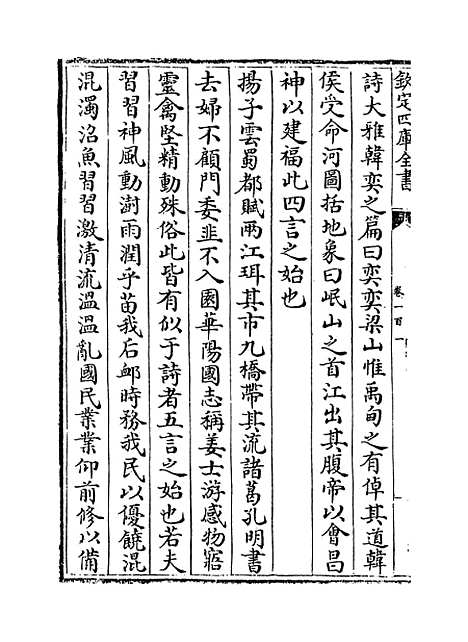 欽定四庫全書
卷一百一
詩大雅韓奕之篇曰奕奕梁山惟禹甸之有倬其道韓
侯受命河圖括地象曰岷山之首江出其腹帝以會昌
神以建福此四言之始也
揚子雲蜀都賦兩江珥其市九橋帶其流諸葛孔明書
去婦不顧門委韭不入園華陽國志稱姜士游感物寤
靈禽堅精動殊俗此皆有似于詩者五言之始也若夫
習習神風動澍雨潤乎苗我后卹時務我民以優饒混
混濁沼魚習習激清流溫溫亂國民業業仰前修以備